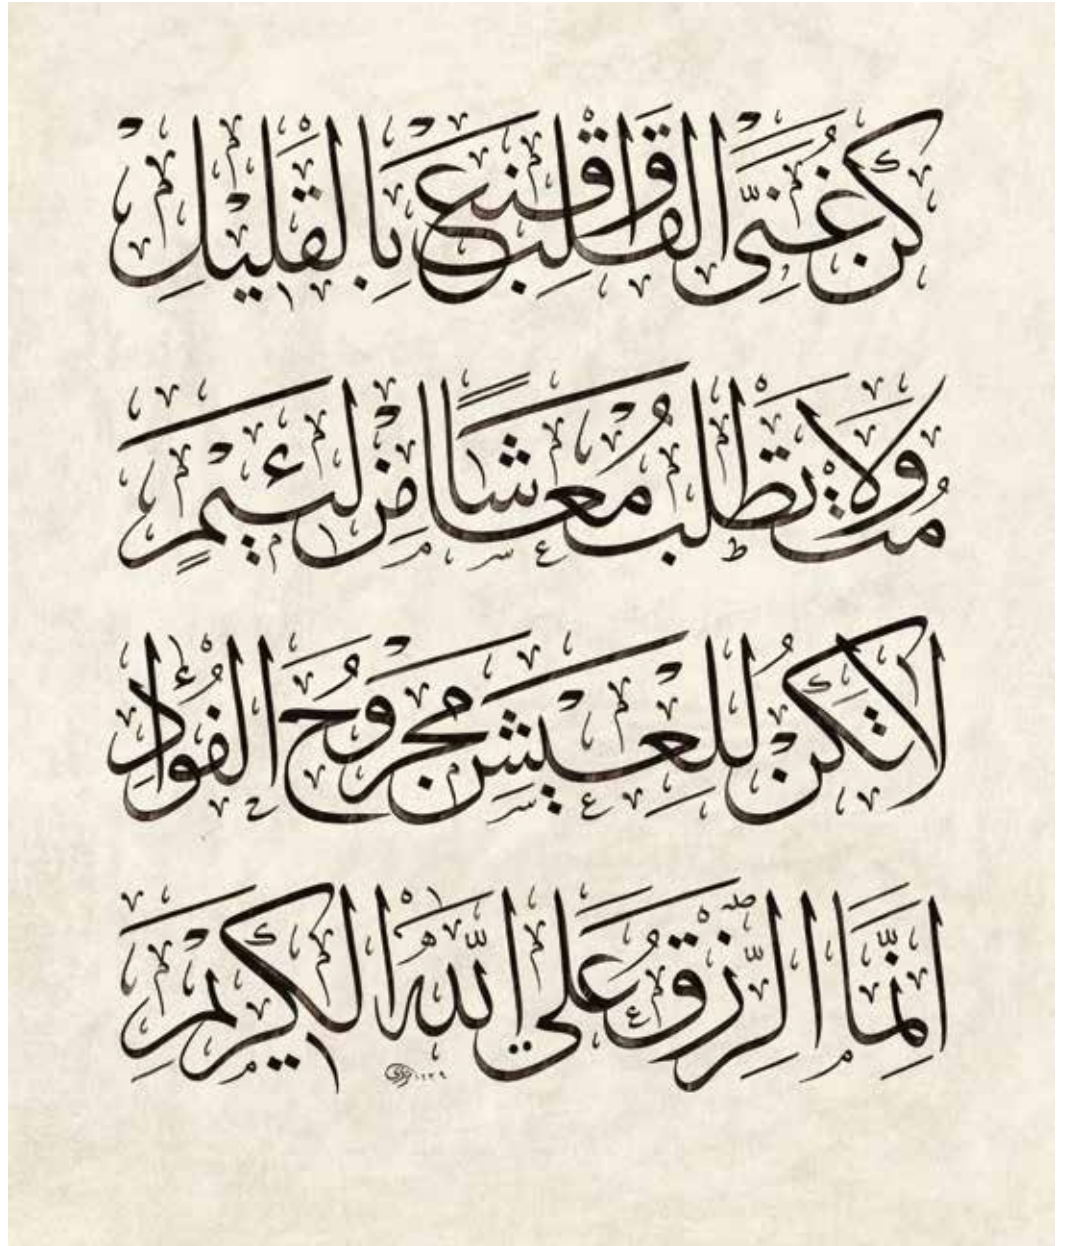 كُنْ غَنِيَّ القَلْبِ وَاقْنَعْ بِالقَلِيلِ
مُتْ وَلَا تَطْلُبْ مَعَاشًا مِنْ لَئِيمٍ
لَا تَكُنْ لِلْعَيْشِ مَجْرُوحَ الفُؤَادِ
اِنَّمَا الرِّزْقُ عَلَى اللّٰهِ الكَرِيمِ